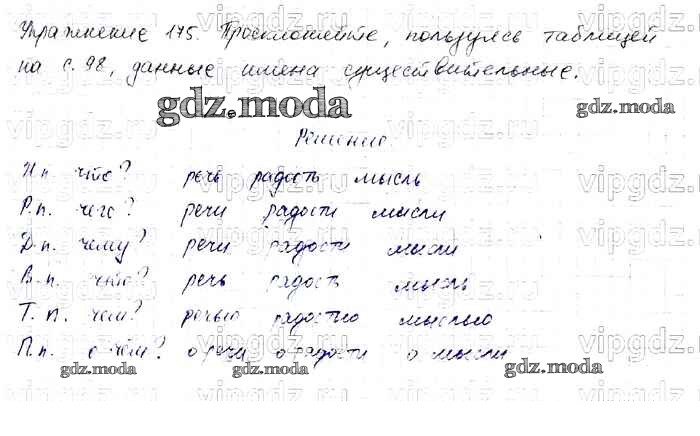 Упражнение 175. Просклоняйте, пользуясь таблицей
на с. 98, данные имена существительные.
gdz.moda
gdz.moda
Решение
И.п. что? речь радость мысль
Р.п. чего? речи радости мысли
Д.п. чему? речи радости мысли
В.п. что? речь радость мысль
Т.п. чем? речью радостью мыслью
П.п. о чём? о речи о радости о мысли
gdz.moda gdz.moda gdz.moda
vipgdz.ru